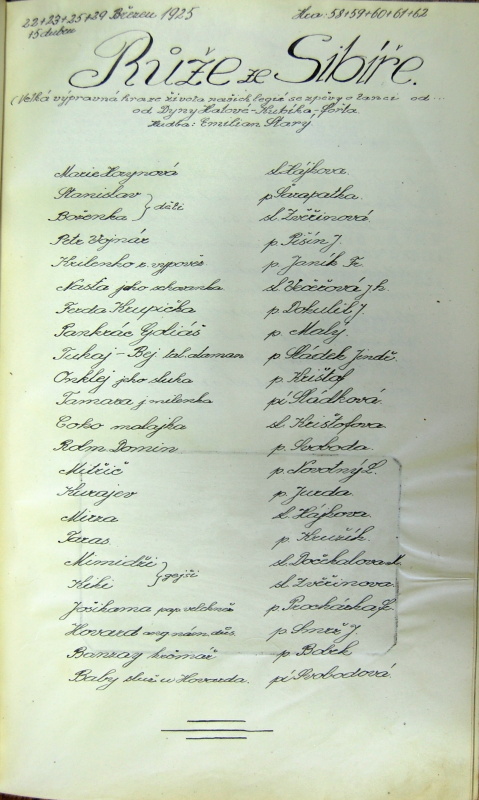 22+23+25+29 Březen 1925
Hra: 58+59+60+61+62
15 duben
Růže ze Sibíře.
(Velká výpravná hra ze života našich legií se zpěvy a tanci od...
od Dyny Halové-Kubíka-Förta
Hudba: Emilian Starý
Marie Hoynová sl. Hájkova.
Stanislav } děti p Šarapatka.
Boženka } sl. Zvěřinová
Petr Vojnár p. Pišín J.
Krilenko r. vypověz p. Janík Fr.
Nasťa jeho schovanka sl.
Ferda Krupička p Dokulil J.
Pankrác Goliáš p. Malý.
Tukaj-Bej tal. p Sládek Jindř.
Onklej jeho sluha p. Krištof
Tamara j milenka pí Sládková.
Coko malajka sl. Krištofova
Rdm Domin. p. Svoboda.
Mitřič p. Novotný L.
Kurajev p. Jurda.
Mirra sl. Hájkova
Taras p. Kružík.
Mimidži } gejši sl.
Kiki } sl. Zvěřinova
Jošikama pap. velekněz p. Procházka F.
Hovard ang. nám. důs. p. Smrž J.
Banzay krčmář p Bobek
Baby služ u Hovarda. pí Svobodová.